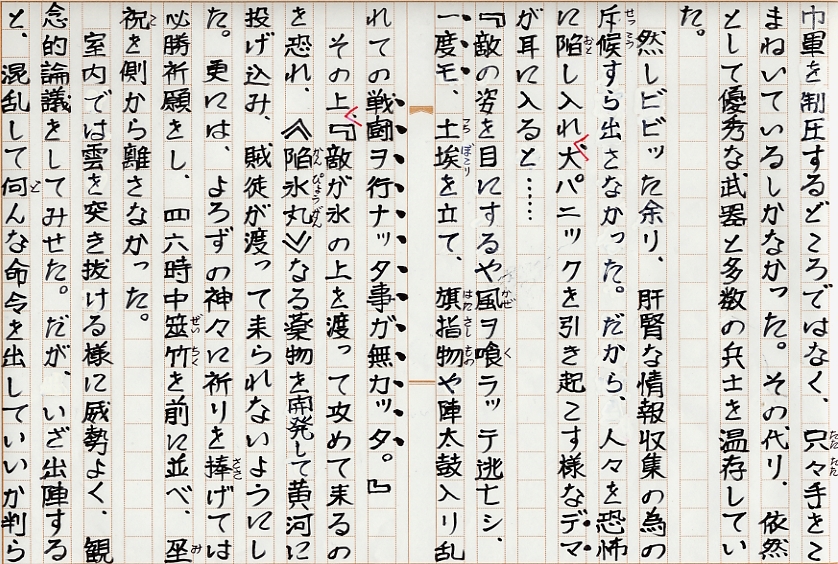 巾軍を制圧するどころではなく、只々手をこ
まねいているしかなかった。その代り、依然
として優秀な武器と多数の兵士を温存してい
た。
然しビビッた余り、肝腎な情報収集の為の
斥候すら出さなかった。だから、人々を恐怖
に陥し入れ、大パニックを引き起こす様なデマ
が耳に入ると……
『敵の姿を目にするや風ヲ喰ラッテ逃亡シ、
一度モ、土埃を立て、旗指物や陣太鼓入リ乱
れての戦闘ヲ行ナッタ事が無カッタ。』
その上、『敵が氷の上を渡って攻めて来るの
を恐れ、≪陥氷丸≫なる薬物を開発して黄河に
投げ込み、賊徒が渡って来られないようにし
た。更には、よろずの神々に祈りを捧げては
必勝祈願をし、四六時中筮竹を前に並べ、巫
祝を側から離さなかった。
室内では雲を突き抜ける様に威勢よく、観
念的論議をしてみせた。だが、いざ出陣する
と、混乱して何んな命令を出していいか判ら